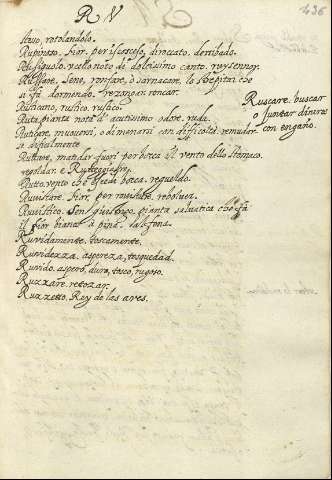 R V
436
Atuo, rotolandolo.
Rupinoso. fior. per iscosceso, diroccato, derribado.
Rusignuolo. uccello noto di dolcissimo canto. ruyseñor.
Russare. Sen. ronfare, o' sornacare. lo strepitar che
si fà dormendo. rezongar roncar.
Rusticano, rustico. rustico.
Ruta. pianta nota d' acutissimo odore. ruda.
Ruticare, muoversi, o dimenarsi con difficoltà. remudar
se dificilmente
Ruttare, mandar fuori per bocca il vento dello stomaco.
regoldar. e Rutteggiare.
Rutto. vento che esce di bocca. regueldo.
Ruvistare. fior. per rovistare. rebolver.
Ruvistico. Sen. pianta salvatica che fà
il fior bianco à pina.
Ruvidamente. toscamente.
Ruvidezza. aspereza, tosquedad.
Ruvido. aspero, duro, tosco, rugoso.
Ruzzare. retozar.
Ruzzetto. Rey de las aves.
Ruscare. buscar
o juntar dineros
con engaño.